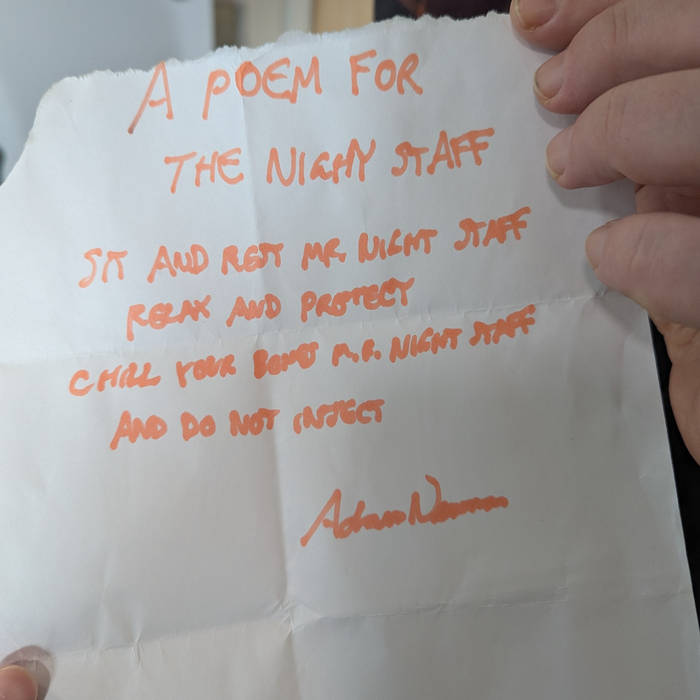 A POEM FOR
THE NIGHY STAFF
SIT AND REST MR. NIGHT STAFF
RELAX AND PROTECT
CHILL YOUR BONES M.R. NIGHT STAFF
AND DO NOT INJECT
Adam Newman